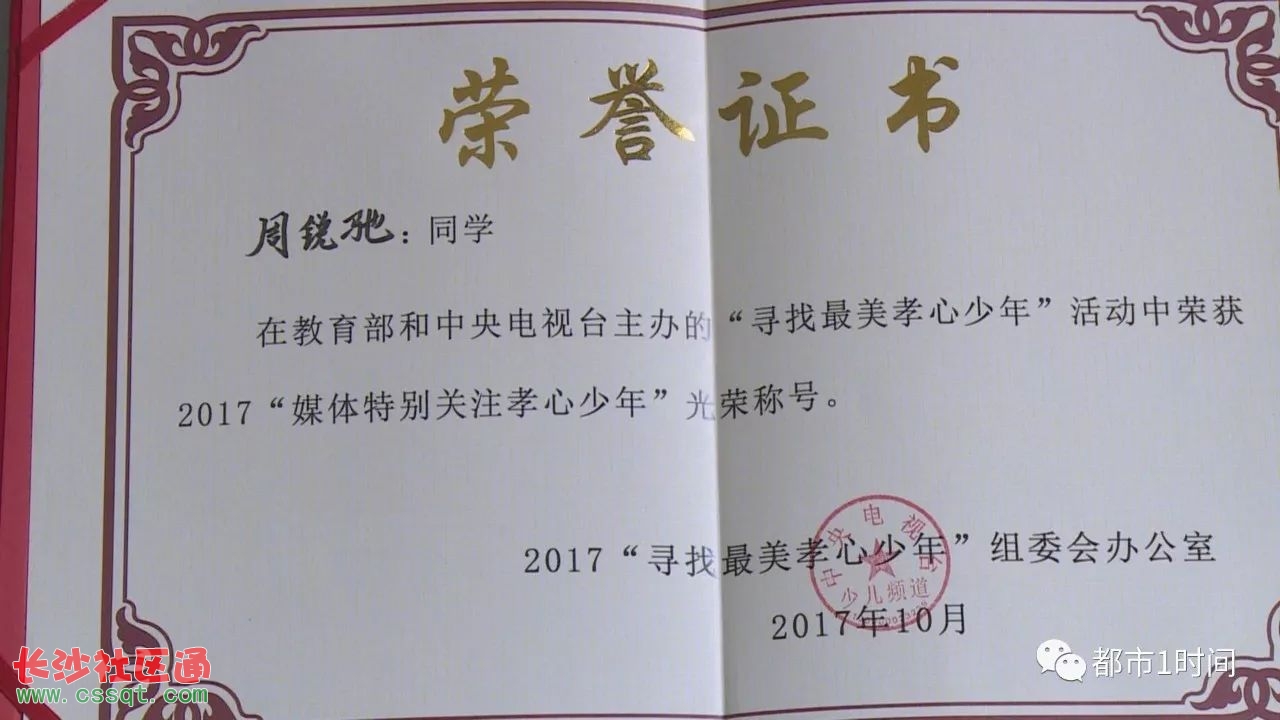 荣誉证书
周锐驰：同学
在教育部和中央电视台主办的“寻找最美孝心少年”活动中荣获
2017“媒体特别关注孝心少年”光荣称号。
2017“寻找最美孝心少年”组委会办公室
中央电视台
少儿频道
2017年10月
长沙社区通
www.cssqt.com
都市1时间